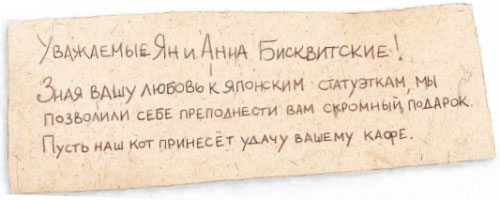 Уважаемые Ян и Анна Бисквитские!
Зная вашу любовь к японским статуэткам, мы
позволили себе преподнести вам скромный подарок.
Пусть наш кот принесёт удачу вашему кафе.